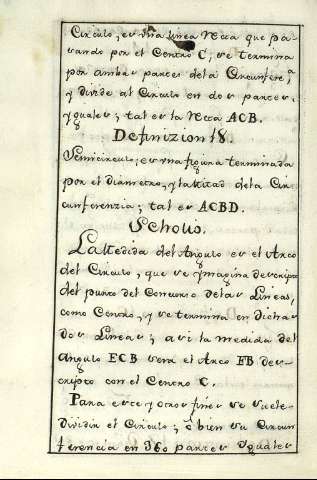 Circulo, es vna linea Recta que pa-
sando por el Centro C, se termina
por ambas partes de la Circunfere,ª
y divide al Circulo en dos partes,
yguales; tal es la Recta ACB.
Definizion 18.
Semicirculo; es vna figura terminada
por el diametro, y la Mitad de la Cir
cunferenzia; tal es ACBD.
Scholio.
La Medida del Angulo es el Arco
del Circulo, que se ymagina descripto
del punto del Concurso de las Lineas,
como Centro, y se termina en dichas
dos Lineas; asi la medida del
angulo ECB sera el Arco FB des-
cripto con el Centro C.
Para este y otros fines se suele
dividir el Circulo; ò bien su Circun
ferencia en 360 partes Yguales